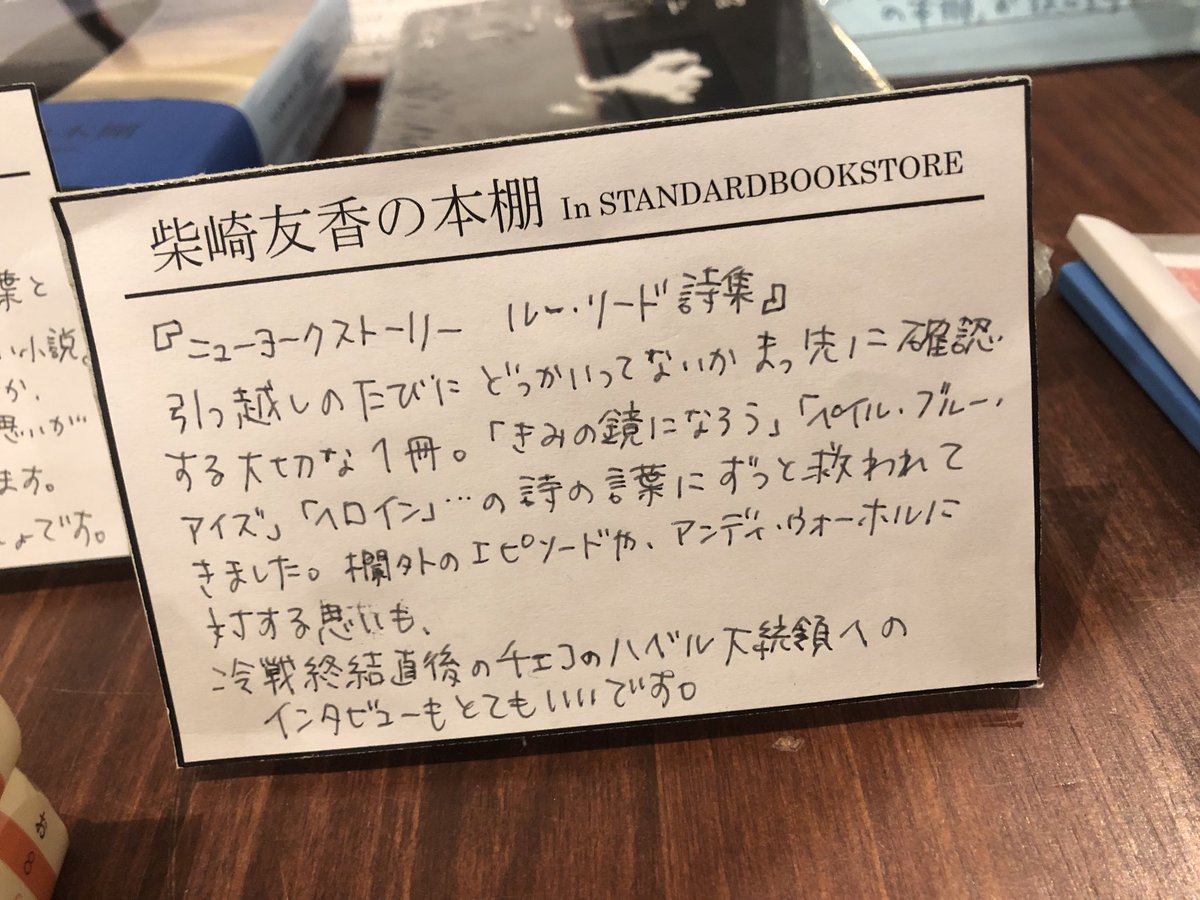 柴崎友香の本棚 In STANDARDBOOKSTORE
『ニューヨークストーリー ルー・リード詩集』
引っ越しのたびにどっかいってないかまっ先に確認
する大切な1冊。「きみの鏡になろう」「ペイル・ブルー・
アイズ」「ヘロイン」…の詩の言葉にずっと救われて
きました。欄外のエピソードや、アンディ・ウォーホルに
対する思いも、
冷戦終結直後のチェコのハベル大統領への
インタビューもとてもいいです。
葉と
い小説。
か、
思いが
ます。
しょです。
の本棚
お
8